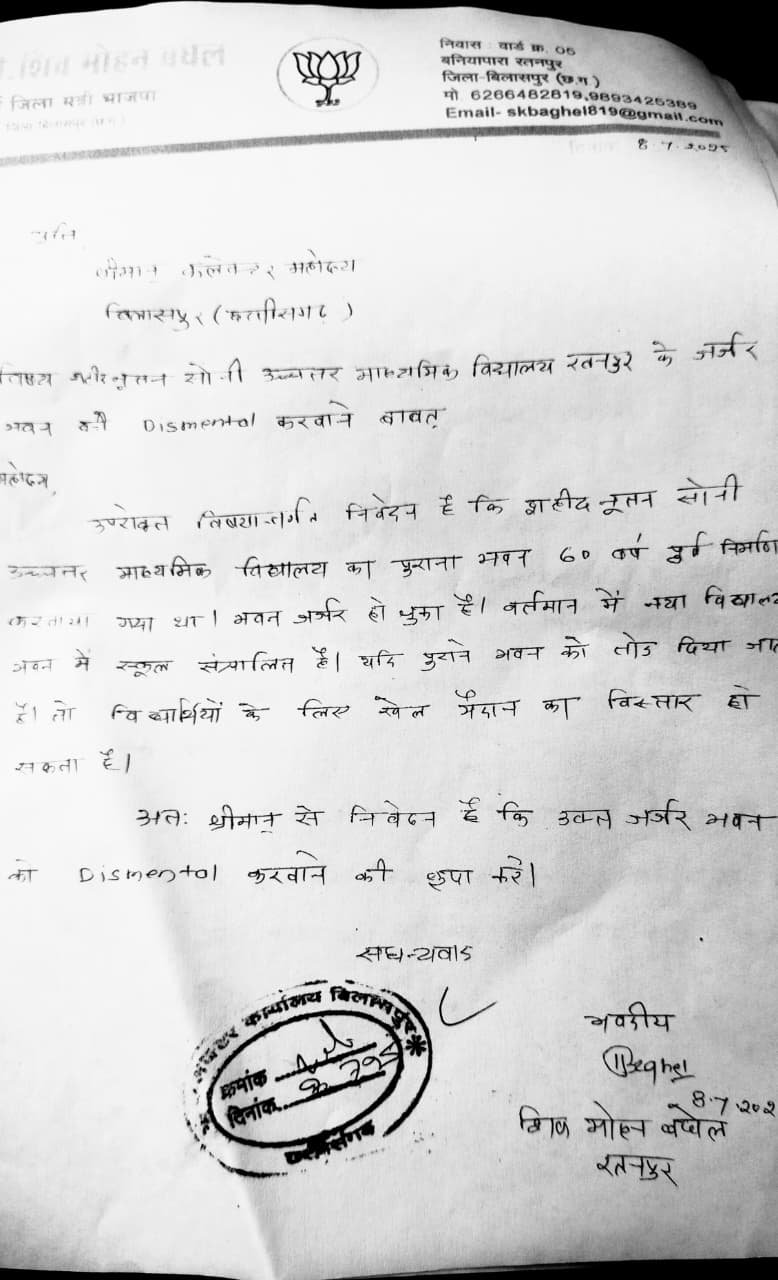 शिव मोहन बघेल
जिला मंत्री भाजपा
निवास : वार्ड क्र. 05
बनियापारा रतनपुर
जिला-बिलासपुर (छ.ग.)
मो. 6266482819,9893425389
Email- skbaghel819@gmail.com
8.7.2025
प्रति,
श्रीमान् कलेक्टर महोदय
बिलासपुर (छत्तीसगढ़)
विषय शहीद नूतन सोनी उच्चतर माध्यमिक विद्यालय रतनपुर के जर्जर
भवन को Dismental करवाने बावत्
महोदय,
उपरोक्त विषयान्तर्गत निवेदन है कि शहीद नूतन सोनी
उच्चतर माध्यमिक विद्यालय का पुराना भवन 60 वर्ष पुर्व निर्माण
करवाया गया था। भवन जर्जर हो चुका है। वर्तमान में नया विद्यालय
भवन में स्कूल संचालित है। यदि पुराने भवन को तोड दिया जाता
है। तो विद्यार्थियों के लिए खेल मैदान का विस्तार हो
सकता है।
अतः श्रीमान् से निवेदन है कि उक्त जर्जर भवन
को Dismental करवाने की कृपा करें।
सधन्यवाद
भवदीय
Baghel
8.7.202
शिव मोहन बघेल
रतनपुर
कलेक्टर कार्यालय बिलासपुर
क्रमांक
दिनांक
छत्तीसगढ़